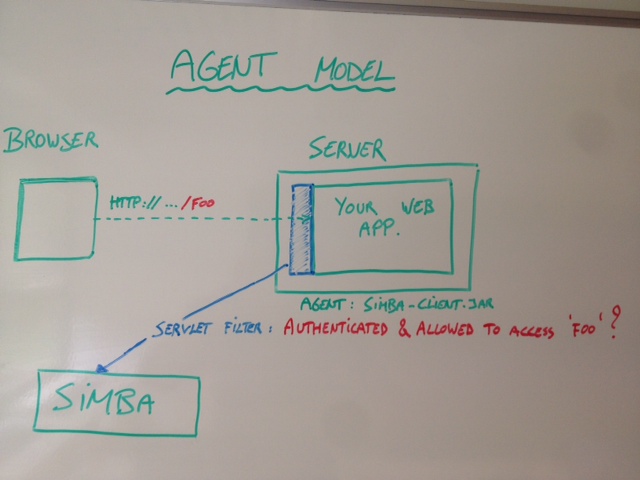 AGENT MODEL
BROWSER
SERVER
HTTP:// ... /FOO
YOUR WEB
APP.
AGENT: SiMBA-CLiENT.JAR
SERVLET FiLTER: AUTHENTiCATED & ALLOWED TO ACCESS 'FOO'?
SiMBA